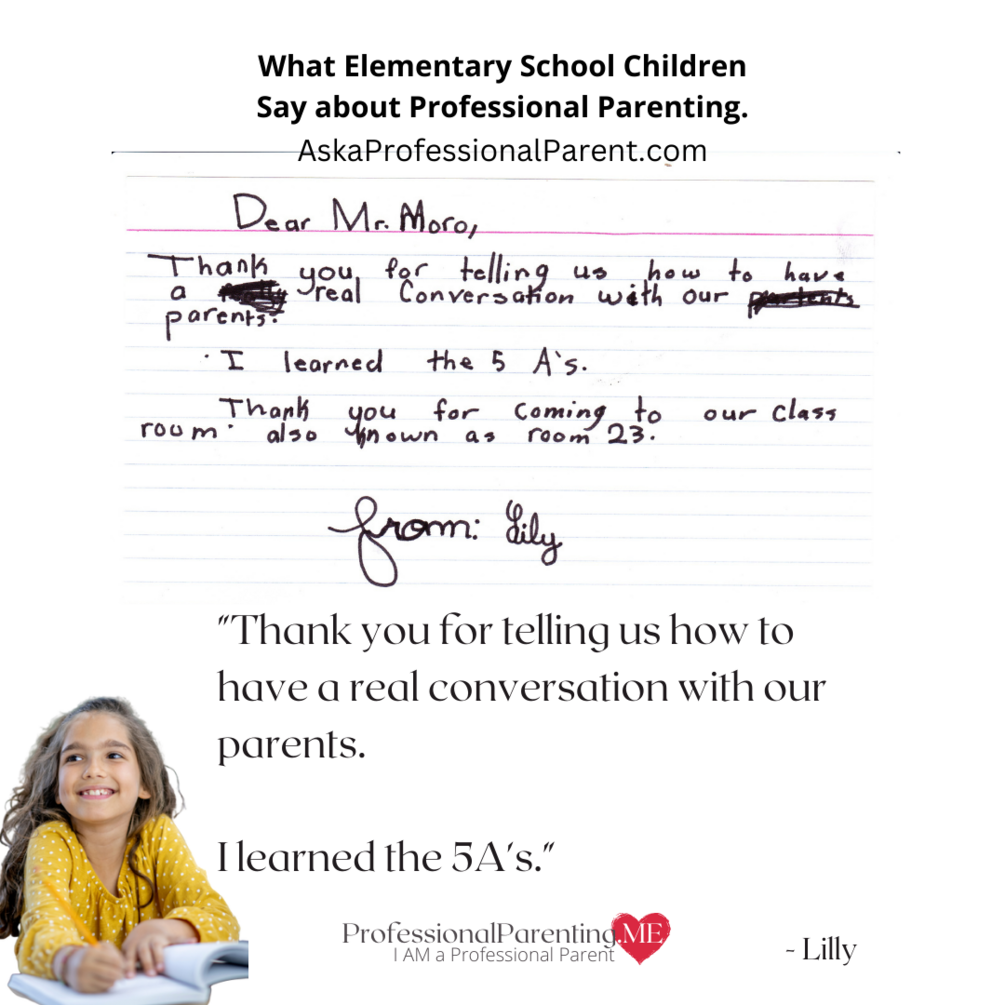 What Elementary School Children
Say about Professional Parenting.
AskaProfessionalParent.com
Dear Mr. Moro,
Thank you, for telling us how to have
a real Conversation with our parents
parents.
· I learned the 5 A's.
Thank you for coming to our class
room. also known as room 23.
from: Lily
"Thank you for telling us how to
have a real conversation with our
parents.
I learned the 5A's."
ProfessionalParenting.ME
I AM a Professional Parent
- Lilly